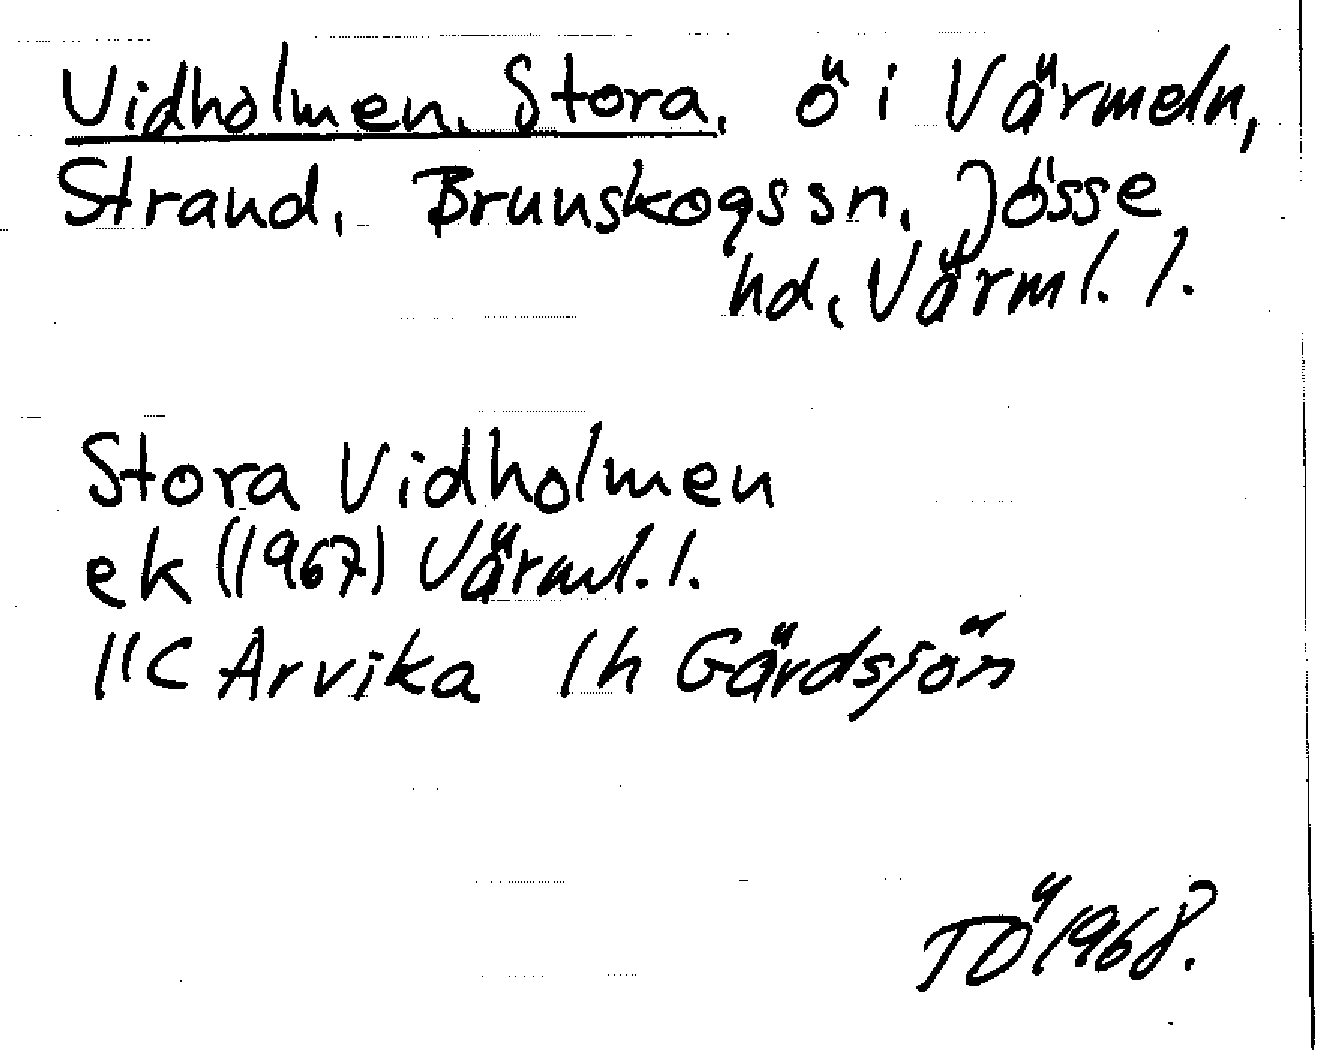 Vidholmen, Stora, ö i Värmeln,
Strand, Brunskogs sn, Jösse
hd, Värml. l.
Stora Vidholmen
ek (1967) Värml. l.
11C Arvika 1h Gärdsjön
TÖ 1968.